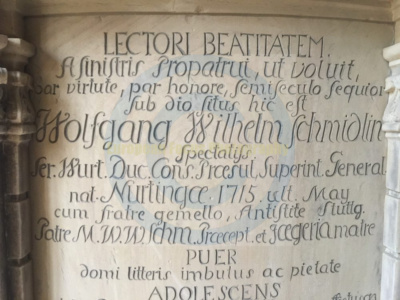 LECTORI BEATITATEM.
A sinistris Propatrui, ut voluit,
par virtute, par honore, semiseculo sequior
sub dio situs hic est
Wolfgang Wilhelm Schmidlin
Spectatiss.
Ser. Wurt. Duc. Cons. Præsul, Superint. General.
nat. Nurtingæ. 1715. ult. May
cum fratre gemello, Antistite Stuttg.
Patre M. W. W. Schm. Præcept. et Jægeria matre
PUER
domi litteris imbutus ac pietate
ADOLESCENS